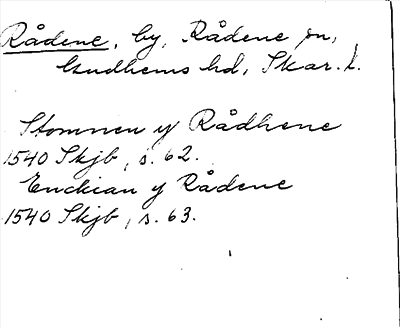 Rådene, by, Rådene sn,
Gudhems hd, Skar. l.
Stommen y Rådhene
1540 Skjb, s. 62.
Enckian y Rådene
1540 Skjb, s. 63.